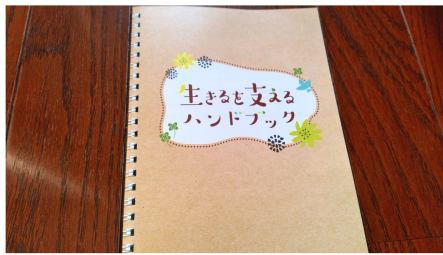 生きるを支える
ハンドブック